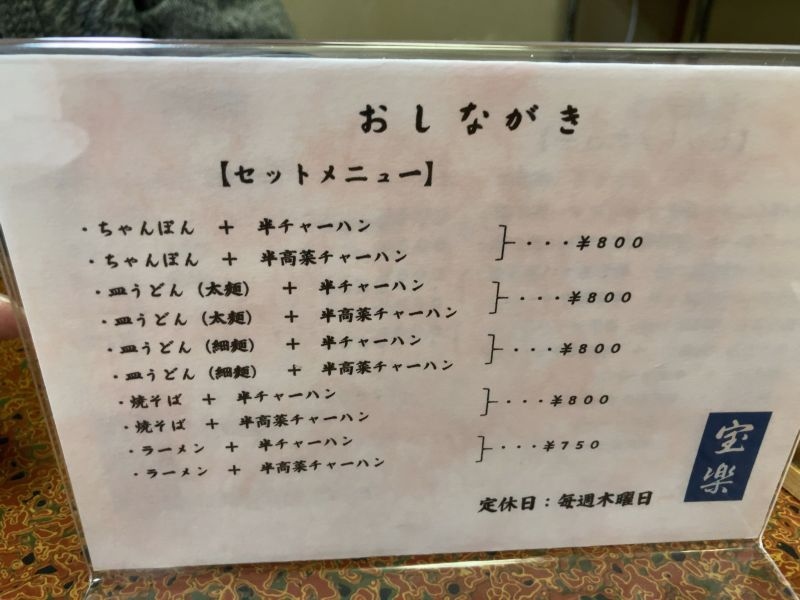 おしながき
【セットメニュー】
・ちゃんぽん ＋ 半チャーハン
・ちゃんぽん ＋ 半高菜チャーハン
・・・・¥800
・皿うどん（太麺） ＋ 半チャーハン
・皿うどん（太麺） ＋ 半高菜チャーハン
・・・・¥800
・皿うどん（細麺） ＋ 半チャーハン
・皿うどん（細麺） ＋ 半高菜チャーハン
・・・・¥800
・焼そば ＋ 半チャーハン
・焼そば ＋ 半高菜チャーハン
・・・・¥800
・ラーメン ＋ 半チャーハン
・ラーメン ＋ 半高菜チャーハン
・・・・¥750
宝楽
定休日：毎週木曜日